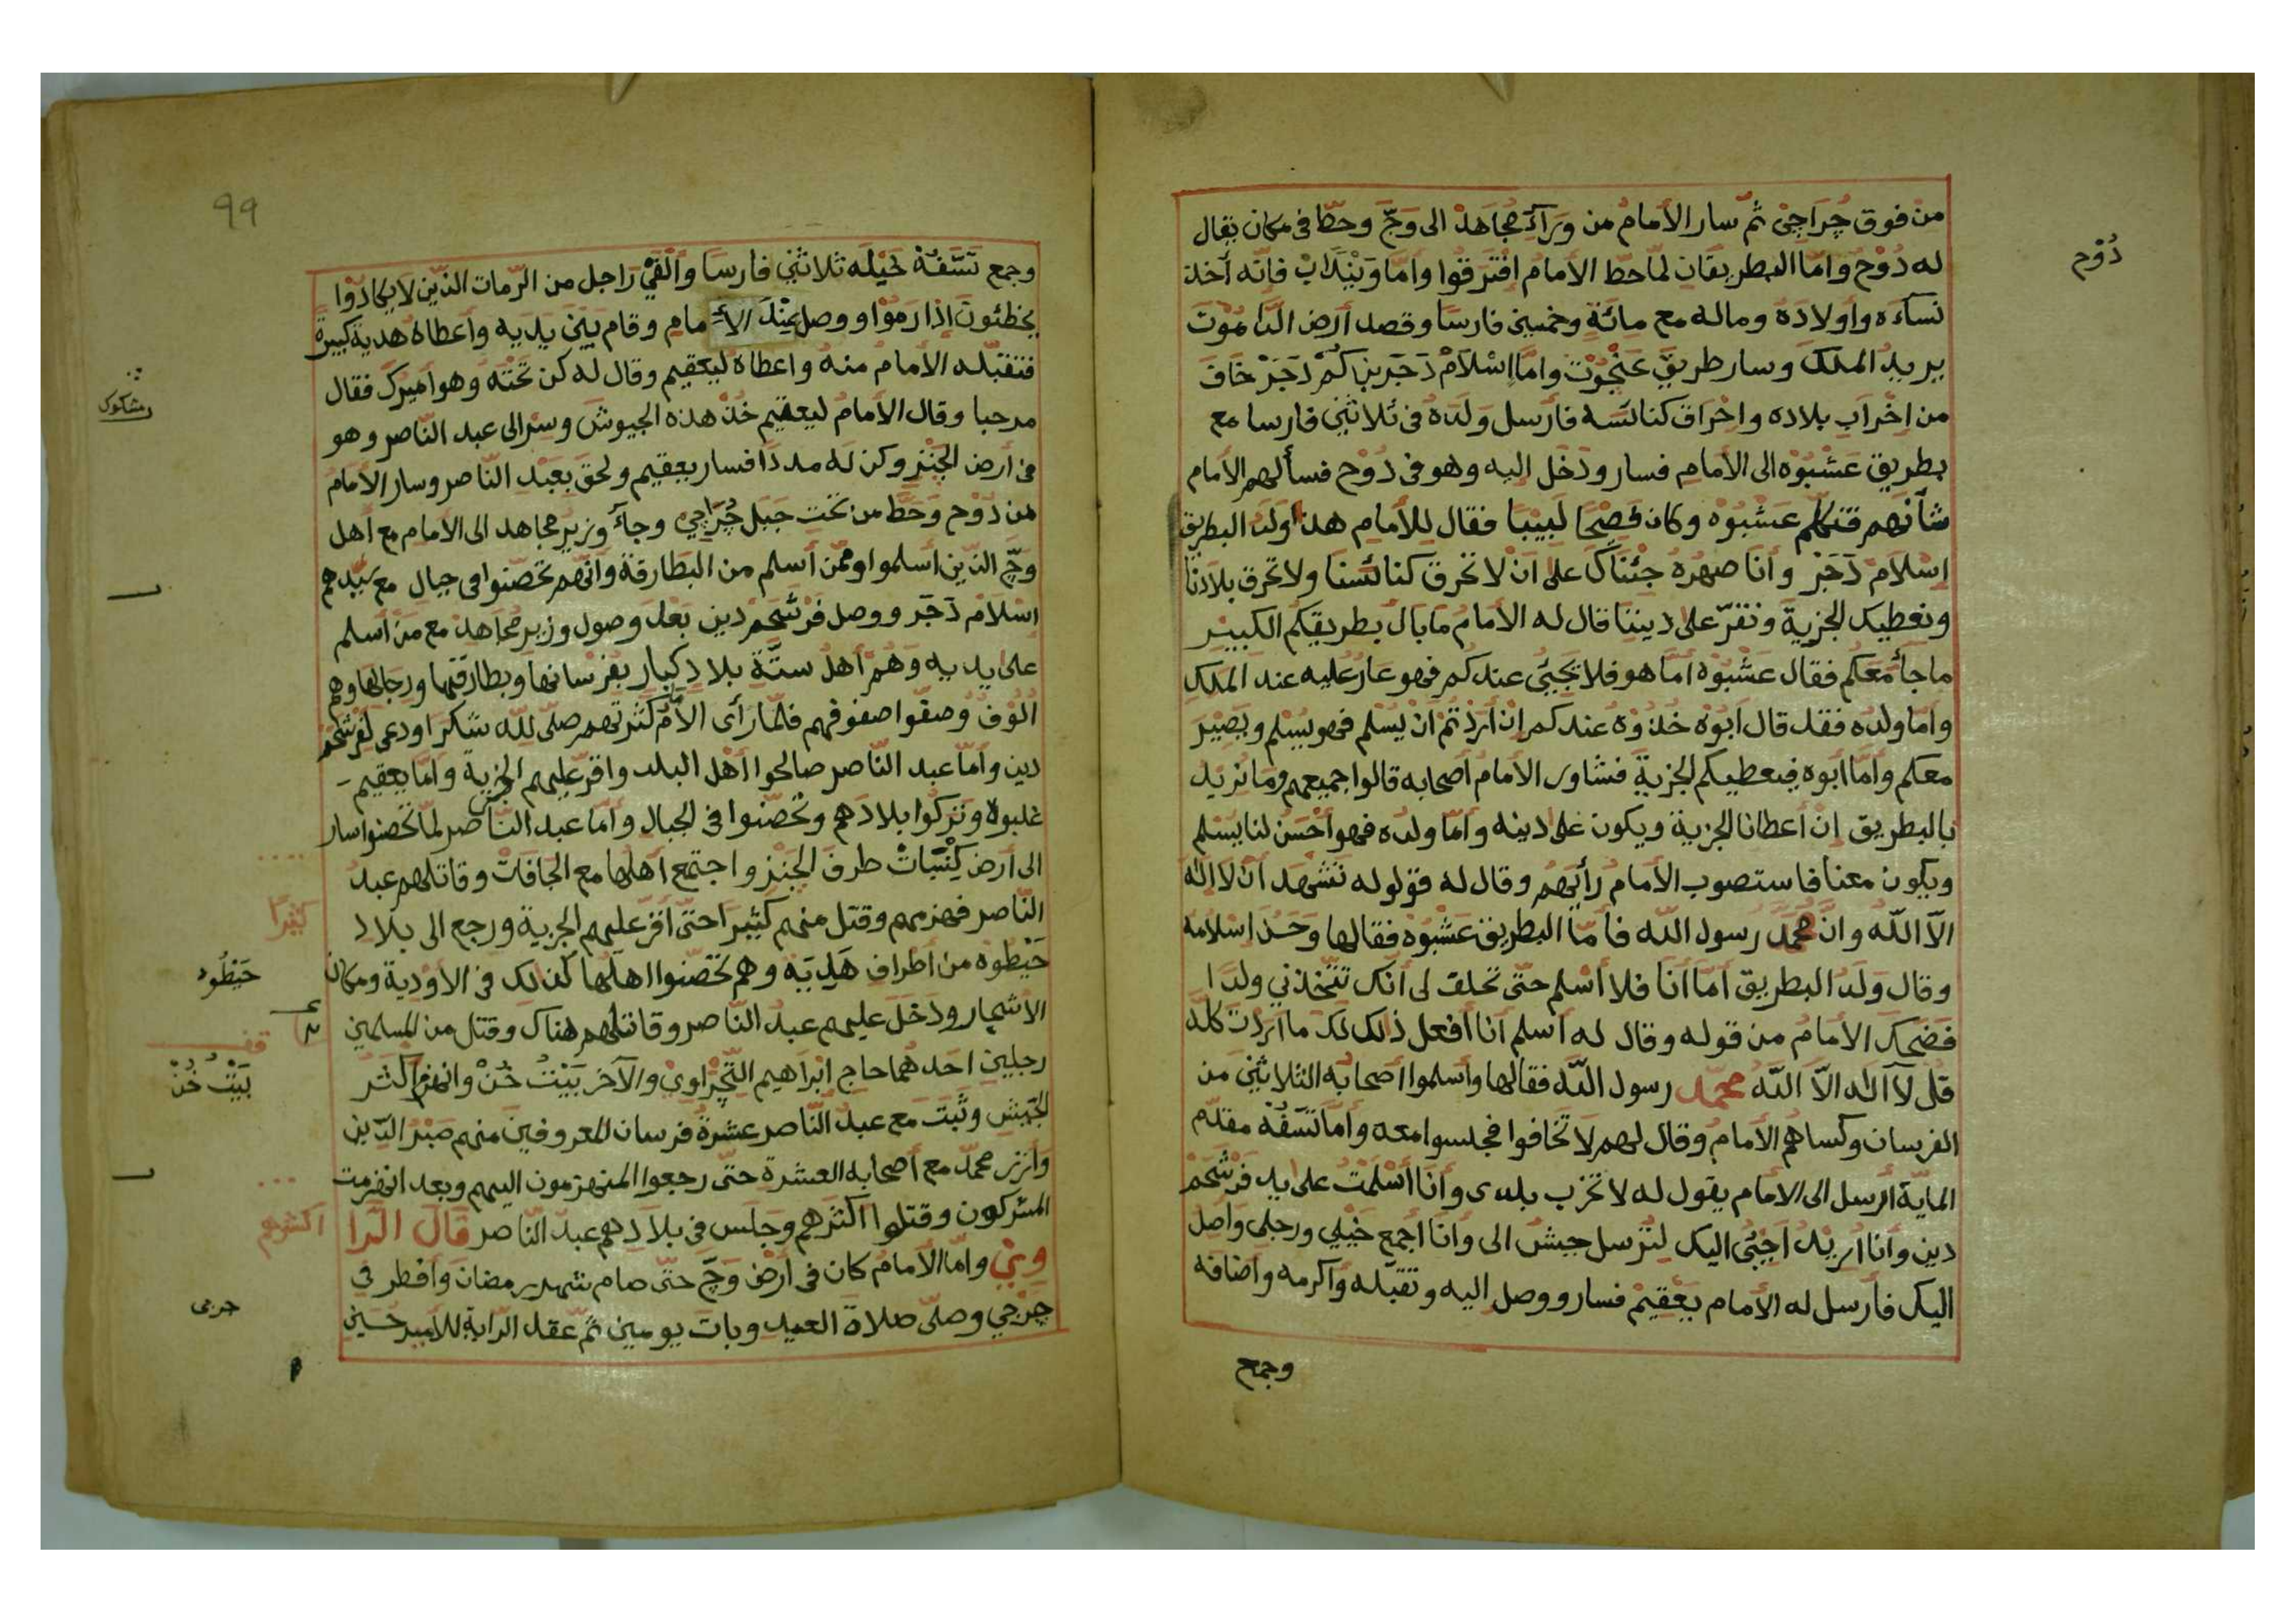 من فوق جراجي ثمّ سار الأمام من ورآء مجاهد الى وجّ وحطّ في مكان يقال
له دوح وامّا البطريقان لمّا حطّ الأمام افترقوا وامّا وينلاب فانّه أخذ
نسآءه وأولاده وماله مع مائة وخمسين فارسا وقصد أرض الداموت
يريد الملك وسار طريق عنجوت وامّا اسلام دجر بن اكم دجر خاف
من اخراب بلاده واحراق كنائسه فأرسل ولده في ثلاثين فارسا مع
بطريق عشبوه الى الأمام فسار ودخل اليه وهو في دوح فسألهم الأمام
شأنهم فتكلّم عشبوه وكان فصيحا لبيبا فقال للأمام هذا ولد البطريق
اسلام دجر وأنا صهره جئناك على ان لا تحرق كنائسنا ولا تحرق بلادنا
ونعطيك الجزية ونقرّ على ديننا قال له الأمام ما بال بطريقكم الكبير
ما جآ معكم فقال عشبوه امّا هو فلا يجيئ عندكم فهو عار عليه عند الملك
وامّا ولده فقد قال ابوه خذوه عندكم ان أردتم ان يسلم فهو يسلم ويصير
معكم وامّا ابوه فيعطيكم الجزية فشاور الأمام أصحابه قالوا جميعهم وما نريد
بالبطريق ان أعطانا الجزية ويكون على دينه وامّا ولده فهو أحسن لنا يسلم
ويكون معنا فاستصوب الأمام رأيهم وقال له قولوا نشهد ان لا اله
الاّ اللّه وانّ محمّد رسول اللّه فامّا البطريق عشبوه فقالها وحسن اسلامه
وقال ولد البطريق امّا أنا فلا أسلم حتّى تحلف لى أنّك تتّخذني ولدا
فضحك الأمام من قوله وقال له أسلم أنا أفعل ذلك لك ما اردت كلّه
قل لآ اله الاّ اللّه محمّد رسول اللّه فقالها وأسلموا أصحابه الثلاثين من
الفرسان وكساهم الأمام وقال لهم لا تخافوا فجلسوا معه وأمّا تسفه مقدّم
الماية أرسل الى الامام يقول له لا تخرب بلدى وأنا أسلمت على يد فرشحم
دين وأنا أريد أجئى اليك لترسل جيش الى وأنا اجمع خيلي ورجلى واصل
اليك فأرسل له الأمام يعقيم فسار ووصل اليه وتقبّله وأكرمه واضافه
وجمع
دوح
٩٩
وجمع تسّفه خيله ثلاثين فارسا وألفي راجل من الرّمات الذّين لا يكادوا
يخطئون اذا رموا ووصل عند الأمام وقام بين يديه وأعطاه هدية كبيرة
فتقبّله الأمام منه واعطاه ليعقيم وقال له كن تحته وهو أميرك فقال
مرحبا وقال الأمام ليعقيم خذ هذه الجيوش وسر الى عبد النّاصر وهو
في أرض الجنز وكن له مددا فسار يعقيم ولحق بعبد النّاصر وسار الأمام
من دوح وحطّ من تحت جبل جراجي وجآء وزير مجاهد الى الامام مع أهل
وجّ الذّين أسلموا وممّن أسلم من البطارقة وانّهم تحصّنوا في جبال مع سيّدهم
اسلام دجر ووصل فرشحم دين بعد وصول وزير مجاهد مع من أسلم
على يديه وهم أهل ستّة بلاد كبار بفرسانها وبطارقتها ورجالها وهم
الوف وصفّوا صفوفهم فلمّا رأى الأمام كثرتهم صلّى للّه شكرا ودعى لفرشحم
دين وأمّا عبد النّاصر صالحوا أهل البلد واقرّ عليهم الجزية وامّا يعقيم
غلبوه وتركوا بلادهم وتحصّنوا في الجبال وأمّا عبد النّاصر لمّا تحصنوا سار
الى أرض كنبات طرف الجنز واجتمع أهلها مع الجافات وقاتلهم عبد
النّاصر فهزمهم وقتل منهم كثيرا حتّى اقرّ عليهم الجزية ورجع الى بلاد
حيطوه من أطراف هديّه وهم تحصّنوا اهلها كذلك في الأودية ومكان
الأشجار ودخل عليهم عبد النّاصر وقاتلهم هناك وقتل من المسلمين
رجلين احدهما حاج ابراهيم التّجراوي والآخر بينت خن وانهزم اكثر
الجيش وثبت مع عبد النّاصر عشرة فرسان المعروفين منهم صبر الدّين
وأزر محمّد مع أصحابه العشرة حتّى رجعوا المنهزمون اليهم وبعد انهزمت
المشركون وقتلوا اكثرهم وجلس في بلادهم عبد النّاصر قال الرّا
وي وامّا الأمام كان في أرض وجّ حتّى صام شهر رمضان وأفطر في
جرجي وصلّى صلاة العيد وبات يومين ثمّ عقد الرّاية للأمير حسين
مشكوك
كثيرا
حيطوه
بينت خن
اكثرهم
جرجى